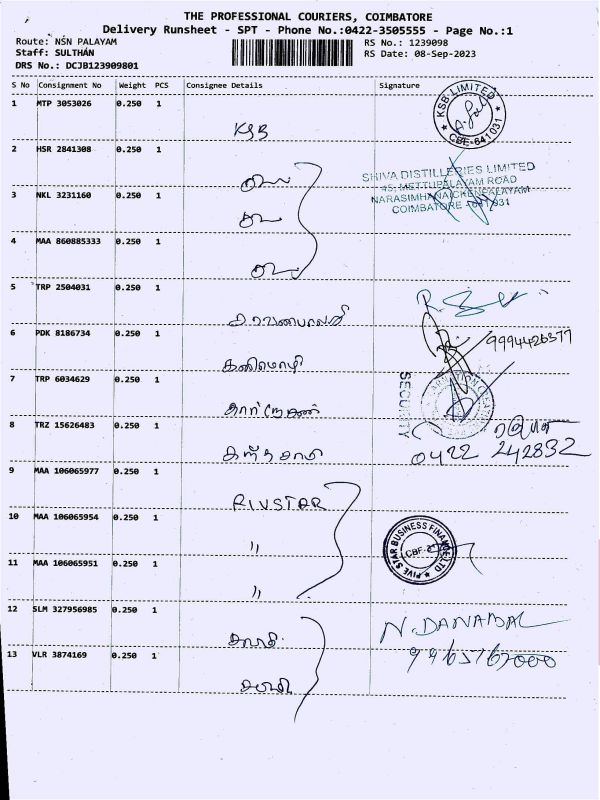 THE PROFESSIONAL COURIERS, COIMBATORE
Delivery Runsheet - SPT - Phone No.:0422-3505555 - Page No.:1
Route: NSN PALAYAM
RS No.: 1239098
Staff: SULTHAN
RS Date: 08-Sep-2023
DRS No.: DCJB123909801
S No Consignment No Weight PCS Consignee Details Signature
1 MTP 3053026 0.250 1
KSB
KSB LIMITED
CBE-641031
2 HSR 2841308 0.250 1
SHIVA DISTILLERIES LIMITED
45, METTUPALAYAM ROAD
NARASIMHANAICKENPALAYAM
COIMBATORE - 641 031
3 NKL 3231160 0.250 1
4 MAA 860885333 0.250 1
5 TRP 2504031 0.250 1
சரவணபாலாஜி
6 PDK 8186734 0.250 1
கனிமொழி
9994426377
7 TRP 6034629 0.250 1
SECURITY
8 TRZ 15626483 0.250 1
கந்தசாமி
0422 242832
9 MAA 106065977 0.250 1
FIVSTAR
10 MAA 106065954 0.250 1
〃
FIVE STAR BUSINESS FINANCE LTD
11 MAA 106065951 0.250 1
〃
12 SLM 327956985 0.250 1
N. DANABAL
13 VLR 3874169 0.250 1